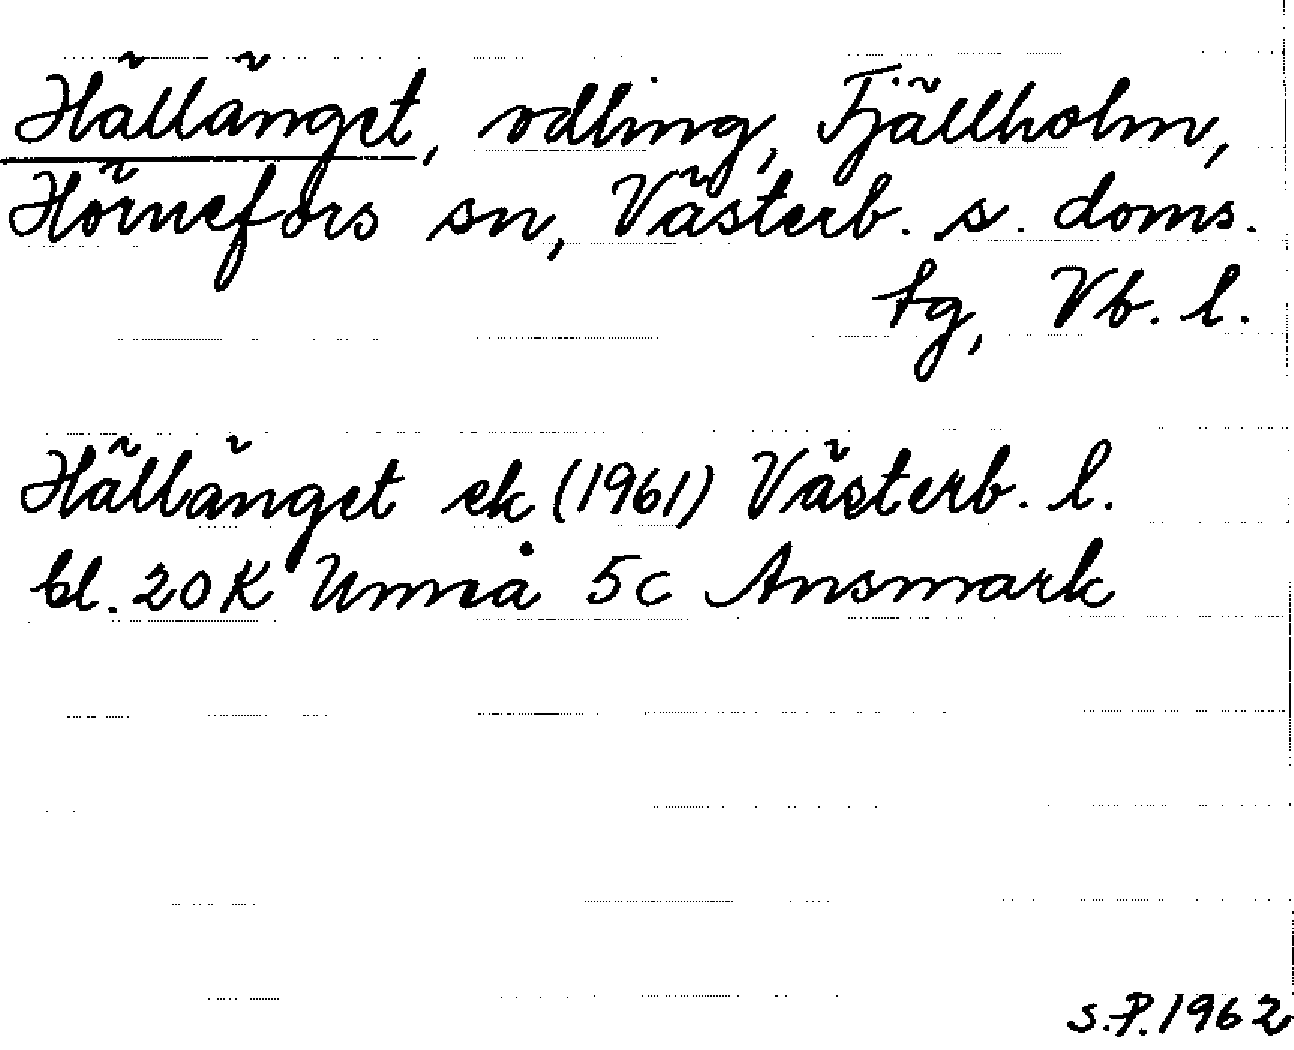 Hällänget, odling, Fjällholm,
Hörnefors sn, Västerb. s. doms.
tg, Vb. l.
Hällänget ek (1961) Västerb. l.
bl. 20 K Umeå 5c Ansmark
S.P. 1962